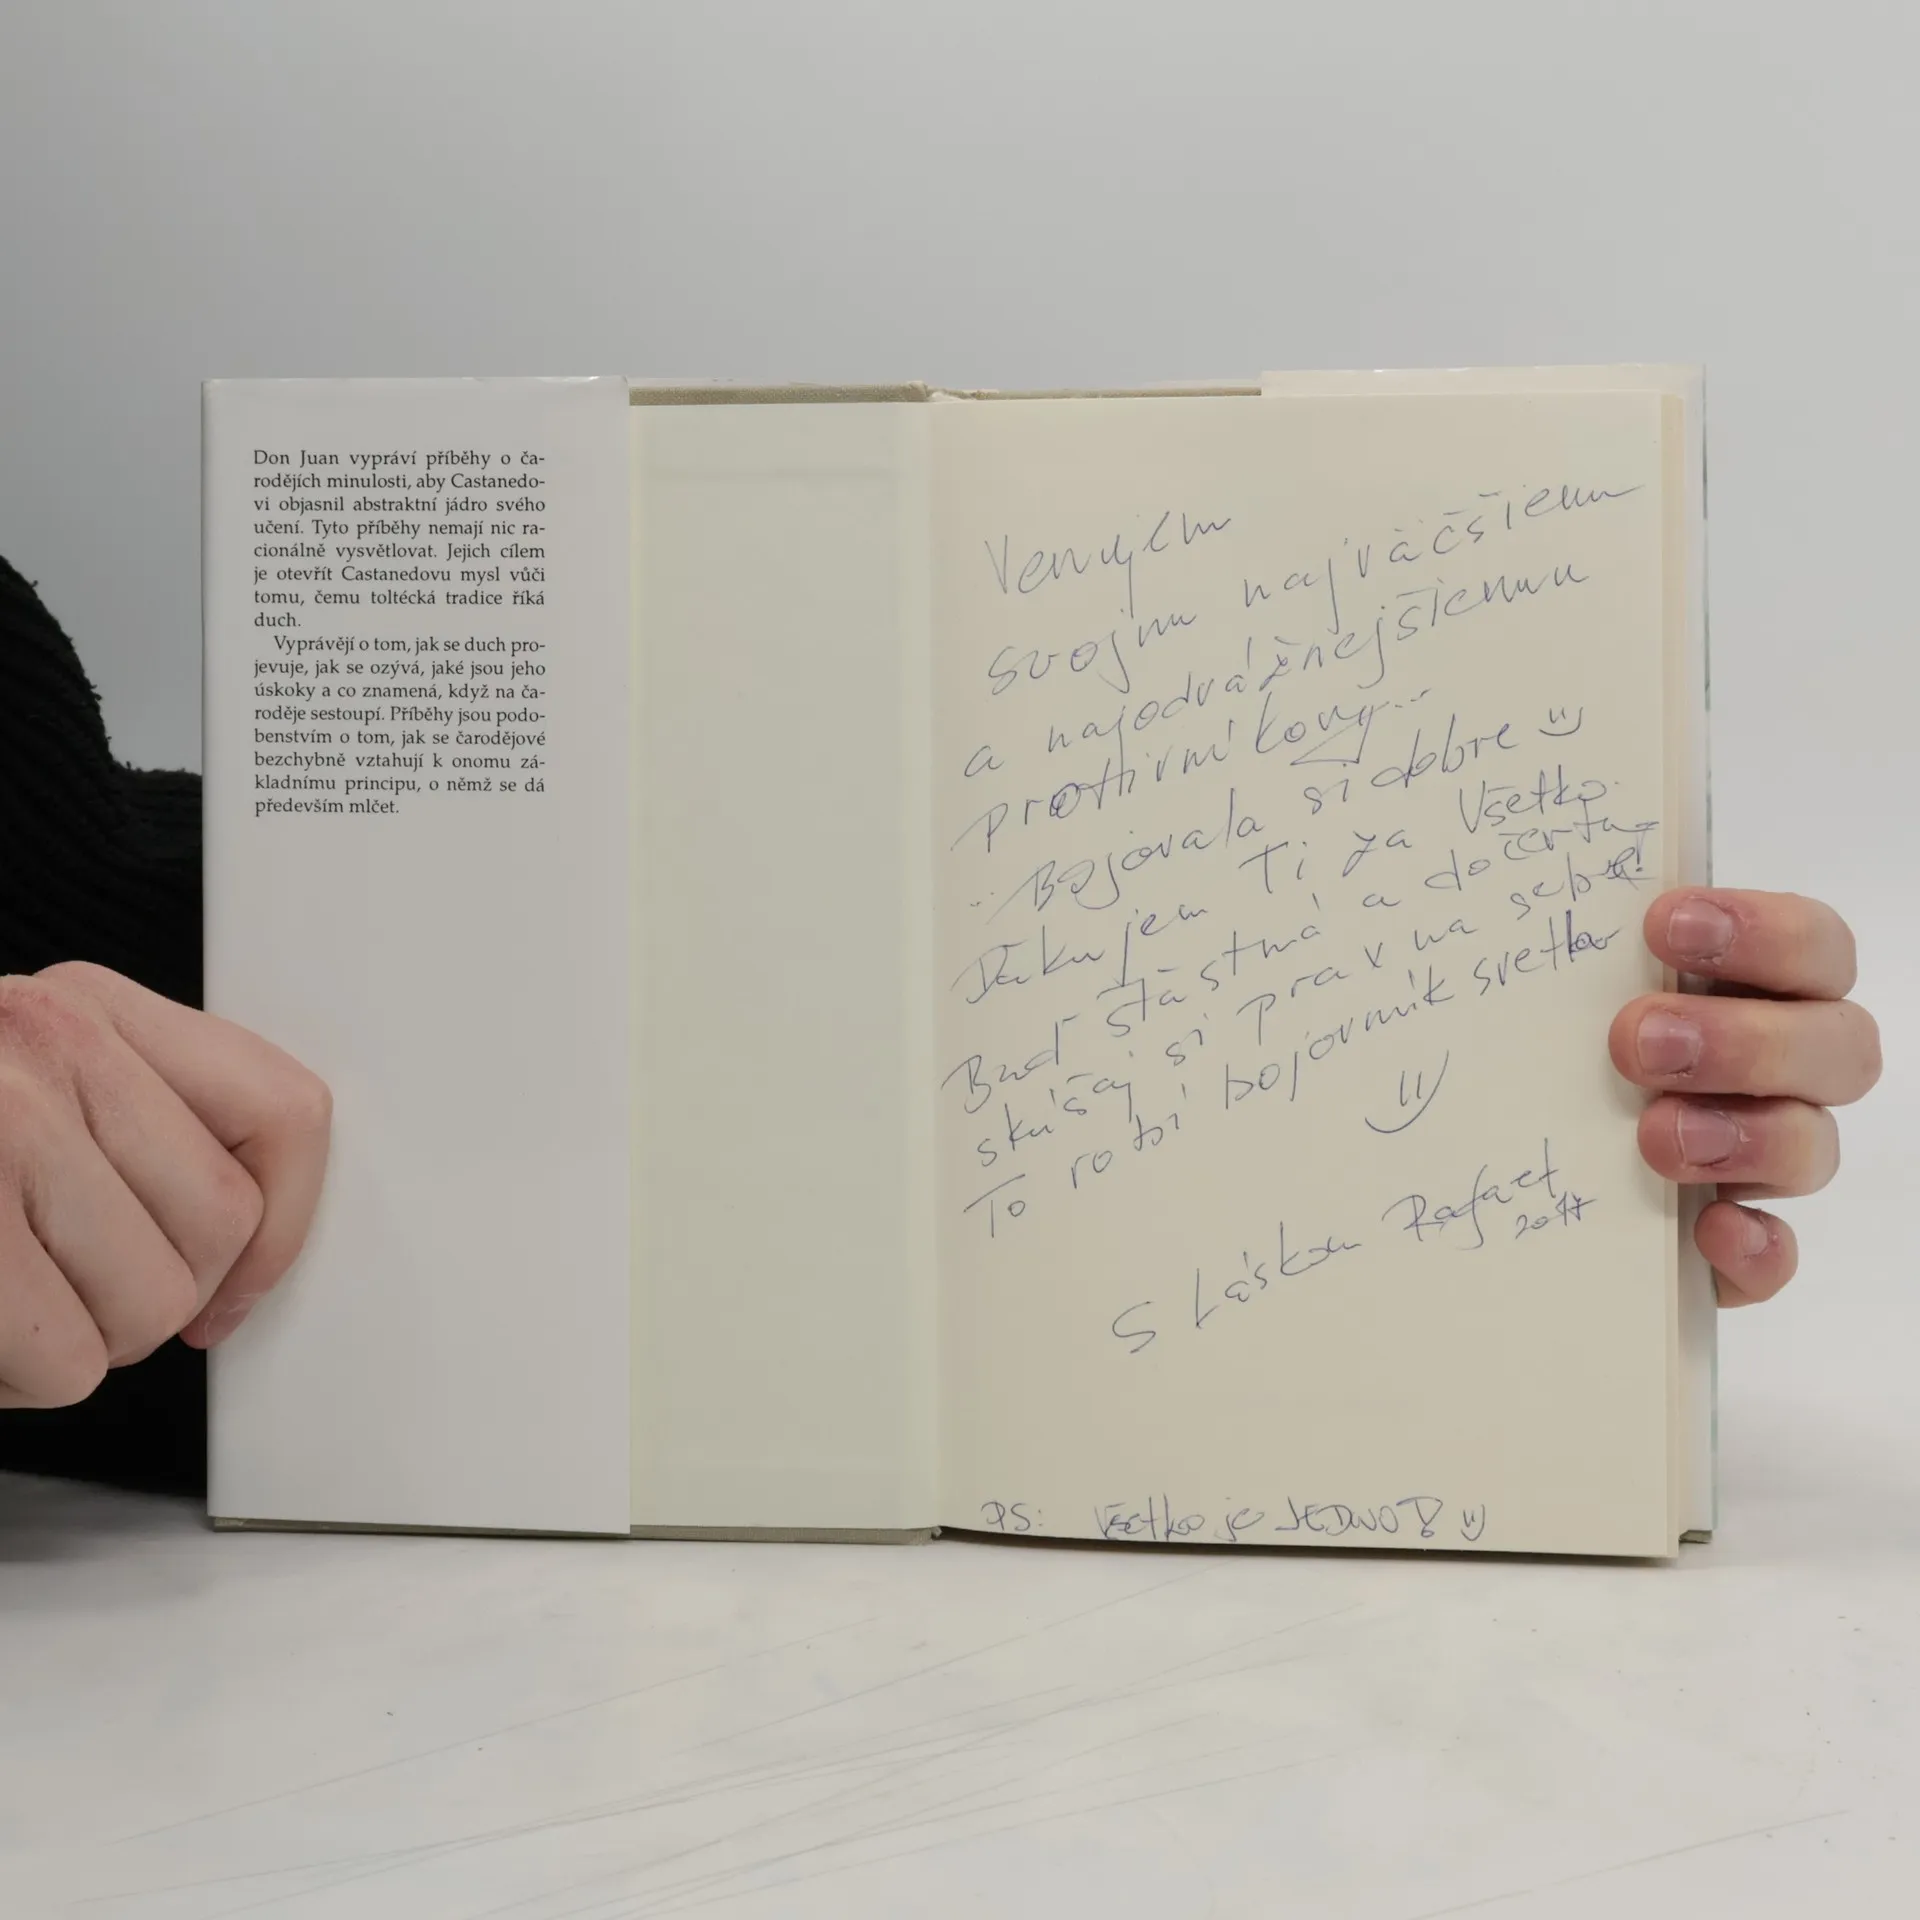 Don Juan vypráví příběhy o ča-
rodějích minulosti, aby Castanedo-
vi objasnil abstraktní jádro svého
učení. Tyto příběhy nemají nic ra-
cionálně vysvětlovat. Jejich cílem
je otevřít Castanedovu mysl vůči
tomu, čemu toltécká tradice říká
duch.
Vyprávějí o tom, jak se duch pro-
jevuje, jak se ozývá, jaké jsou jeho
úskoky a co znamená, když na ča-
roděje sestoupí. Příběhy jsou podo-
benstvím o tom, jak se čarodějové
bezchybně vztahují k onomu zá-
kladnímu principu, o němž se dá
především mlčet.
Venujem
svojmu najväčšiemu
a najodvážnejšiemu
protivníkovy...
...Bojovala si dobre
Ďakujem Ti za Všetko.
Buď šťastná a do čertu
skúšaj si prax na sebe!
To robí bojovník svetla
S Láskou Rafael
2017
PS: Všetko je JEDNO!